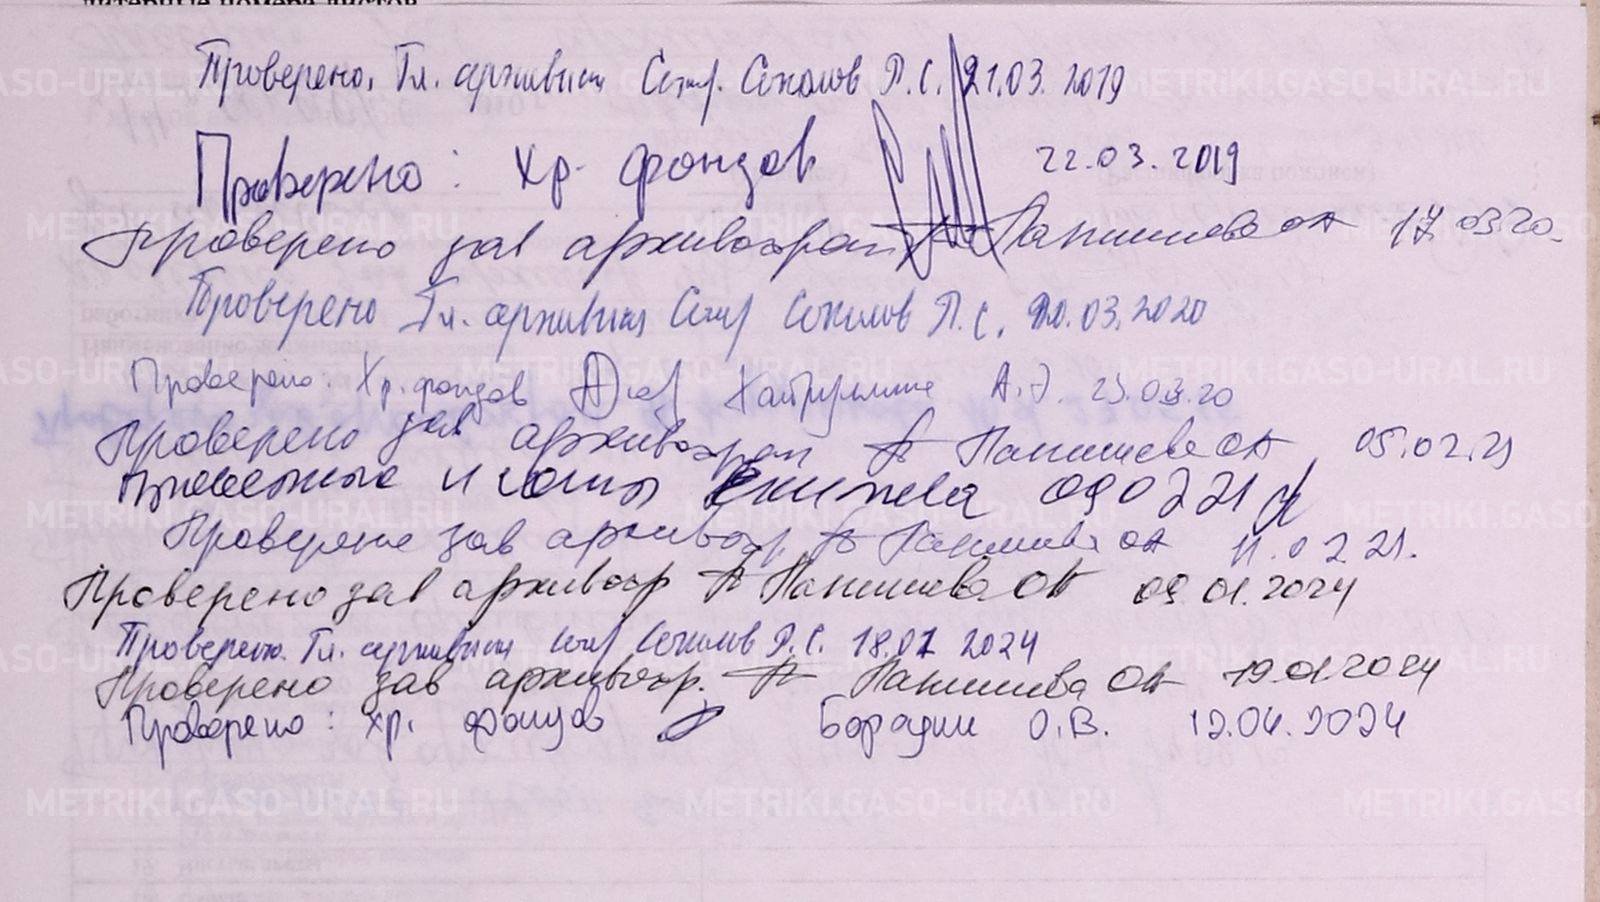 литерные номера листов
Проверено. Гл. архивист Соколов Р.С. 21.03.2019
Проверено: хр. фондов 22.03.2019
Проверено зав архивохран Паншиева ОА 17.03.20.
Проверено Гл. архивист Соколов Р.С. 20.03.2020
Проверено: Хр. фондов Хайруллина А.Э. 23.03.20
Проверено зав архивохран ОА 05.02.21
и 090221
Проверено зав архивохр. ОА 11.02 21.
Проверено зав архивохр ОА 09.01.2024
Проверено. Гл. архивист Соколов Р.С. 18.01 2024
Проверено зав архивохр. ОА 19.01 2024
Проверено: хр. фондов Бородин О.В. 12.04.2024
METRIKI.GASO-URAL.RU